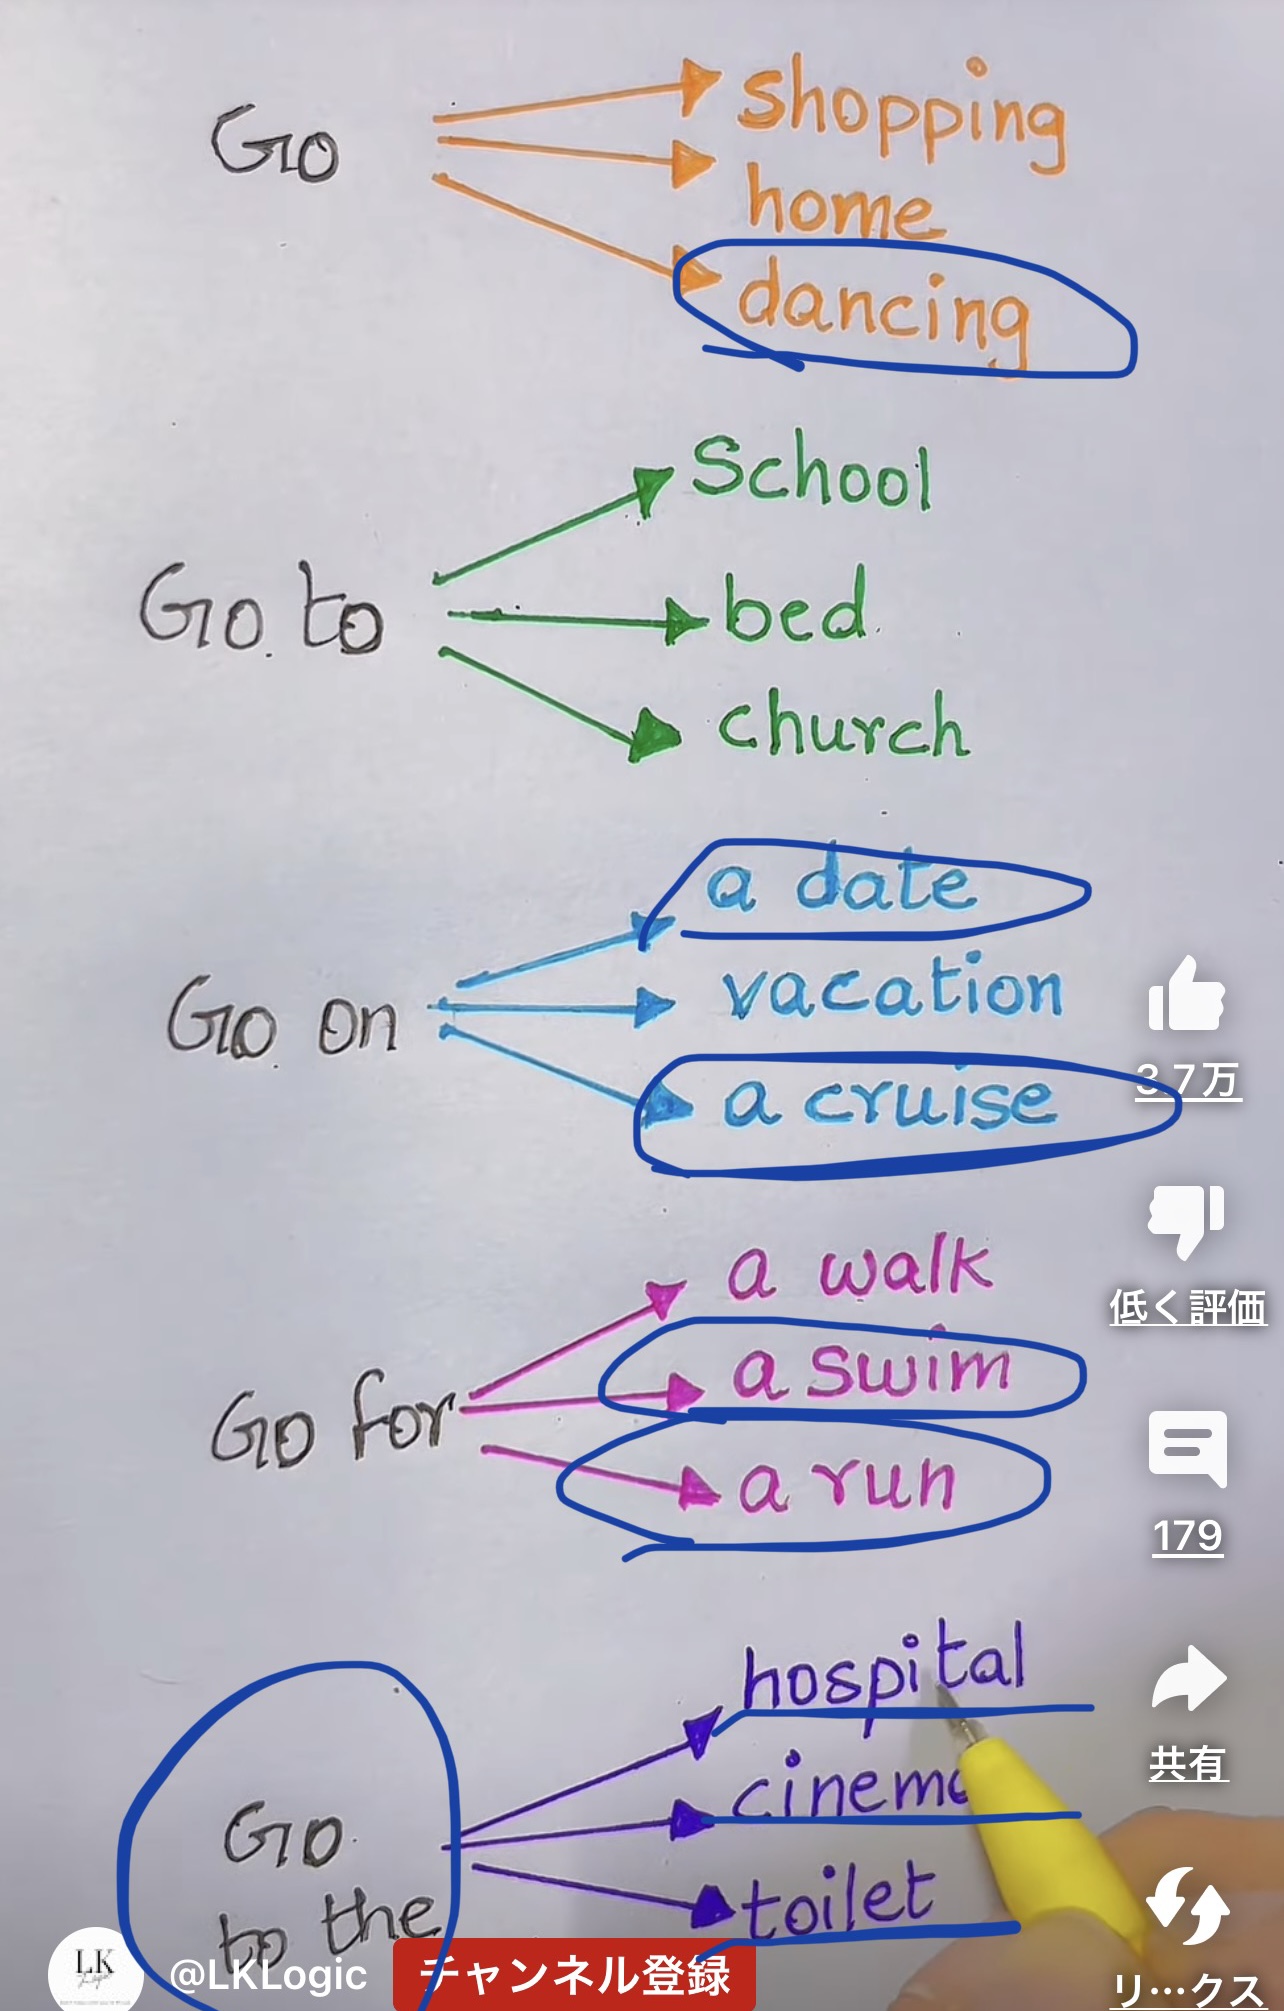 Go
shopping
home
dancing
Go to
School
bed
church
Go on
a date
vacation
a cruise
Go for
a walk
a swim
a run
Go
to the
hospital
cinema
toilet
3.7万
低く評価
179
共有
リ…クス
LK
@LKLogic
チャンネル登録